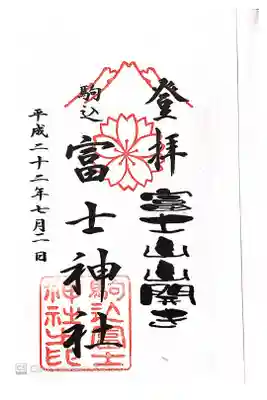 登拝
富士山山開き
駒込
富士神社
平成二十二年七月二日
駒込富士
神社之印